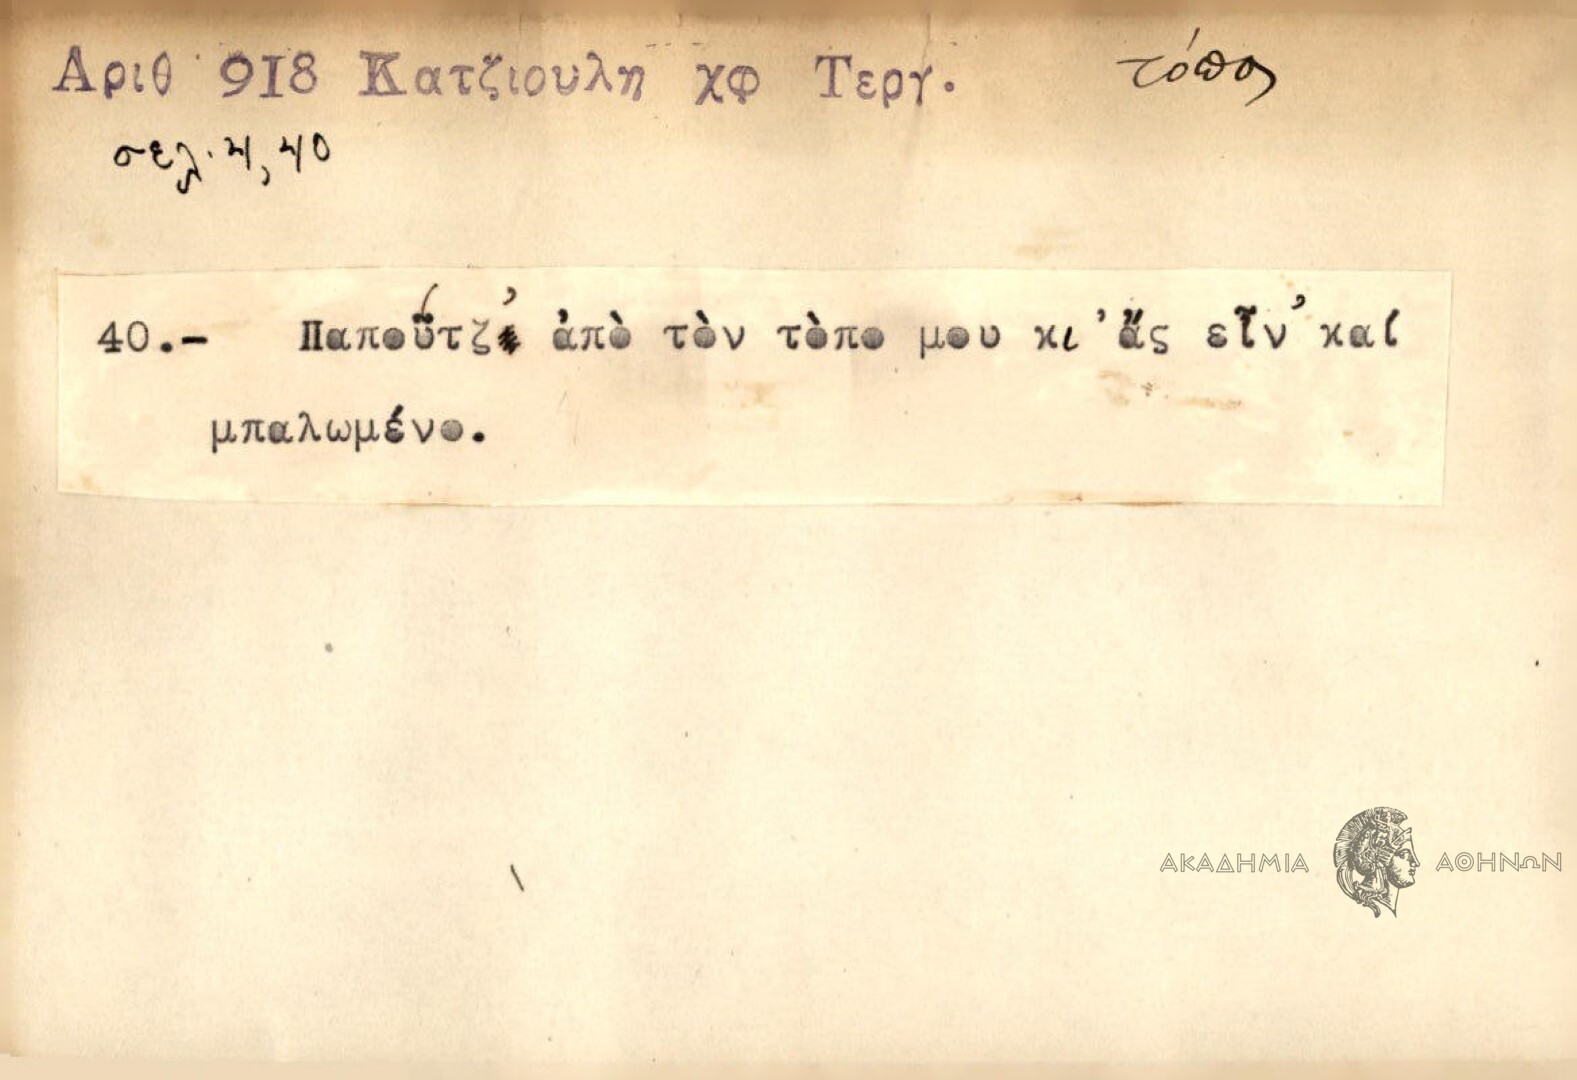 Αριθ 918 Κατζιουλη χφ Τεργ. τόπος
σελ. 4, 40
40.- Παπούτζ' ἀπὸ τὸν τὸπο μου κι' ἄς εἶν' καί
μπαλωμένο.
ΑΚΑΔΗΜΙΑ ΑΘΗΝΩΝ